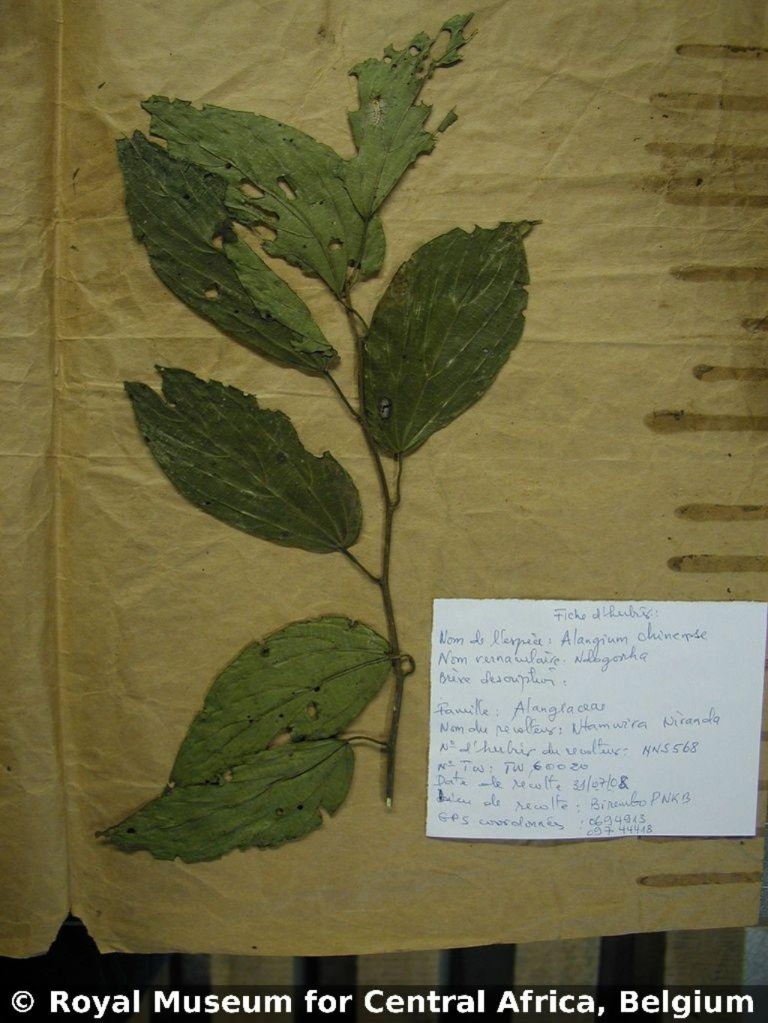 Fiche d'herbier:
Nom de l'espèce: Alangium chinense
Nom vernaculaire: Ndegosha
Brève description:
Famille: Alangiaceae
Nom du récolteur: Ntamwira Niranda
N° d'herbier du récolteur: NNS 568
N° TW: TW 60020
Date de récolte 31/07/08
Lieu de récolte: Birembo PNKB
GPS coordonnées: 0694813
09744418
© Royal Museum for Central Africa, Belgium